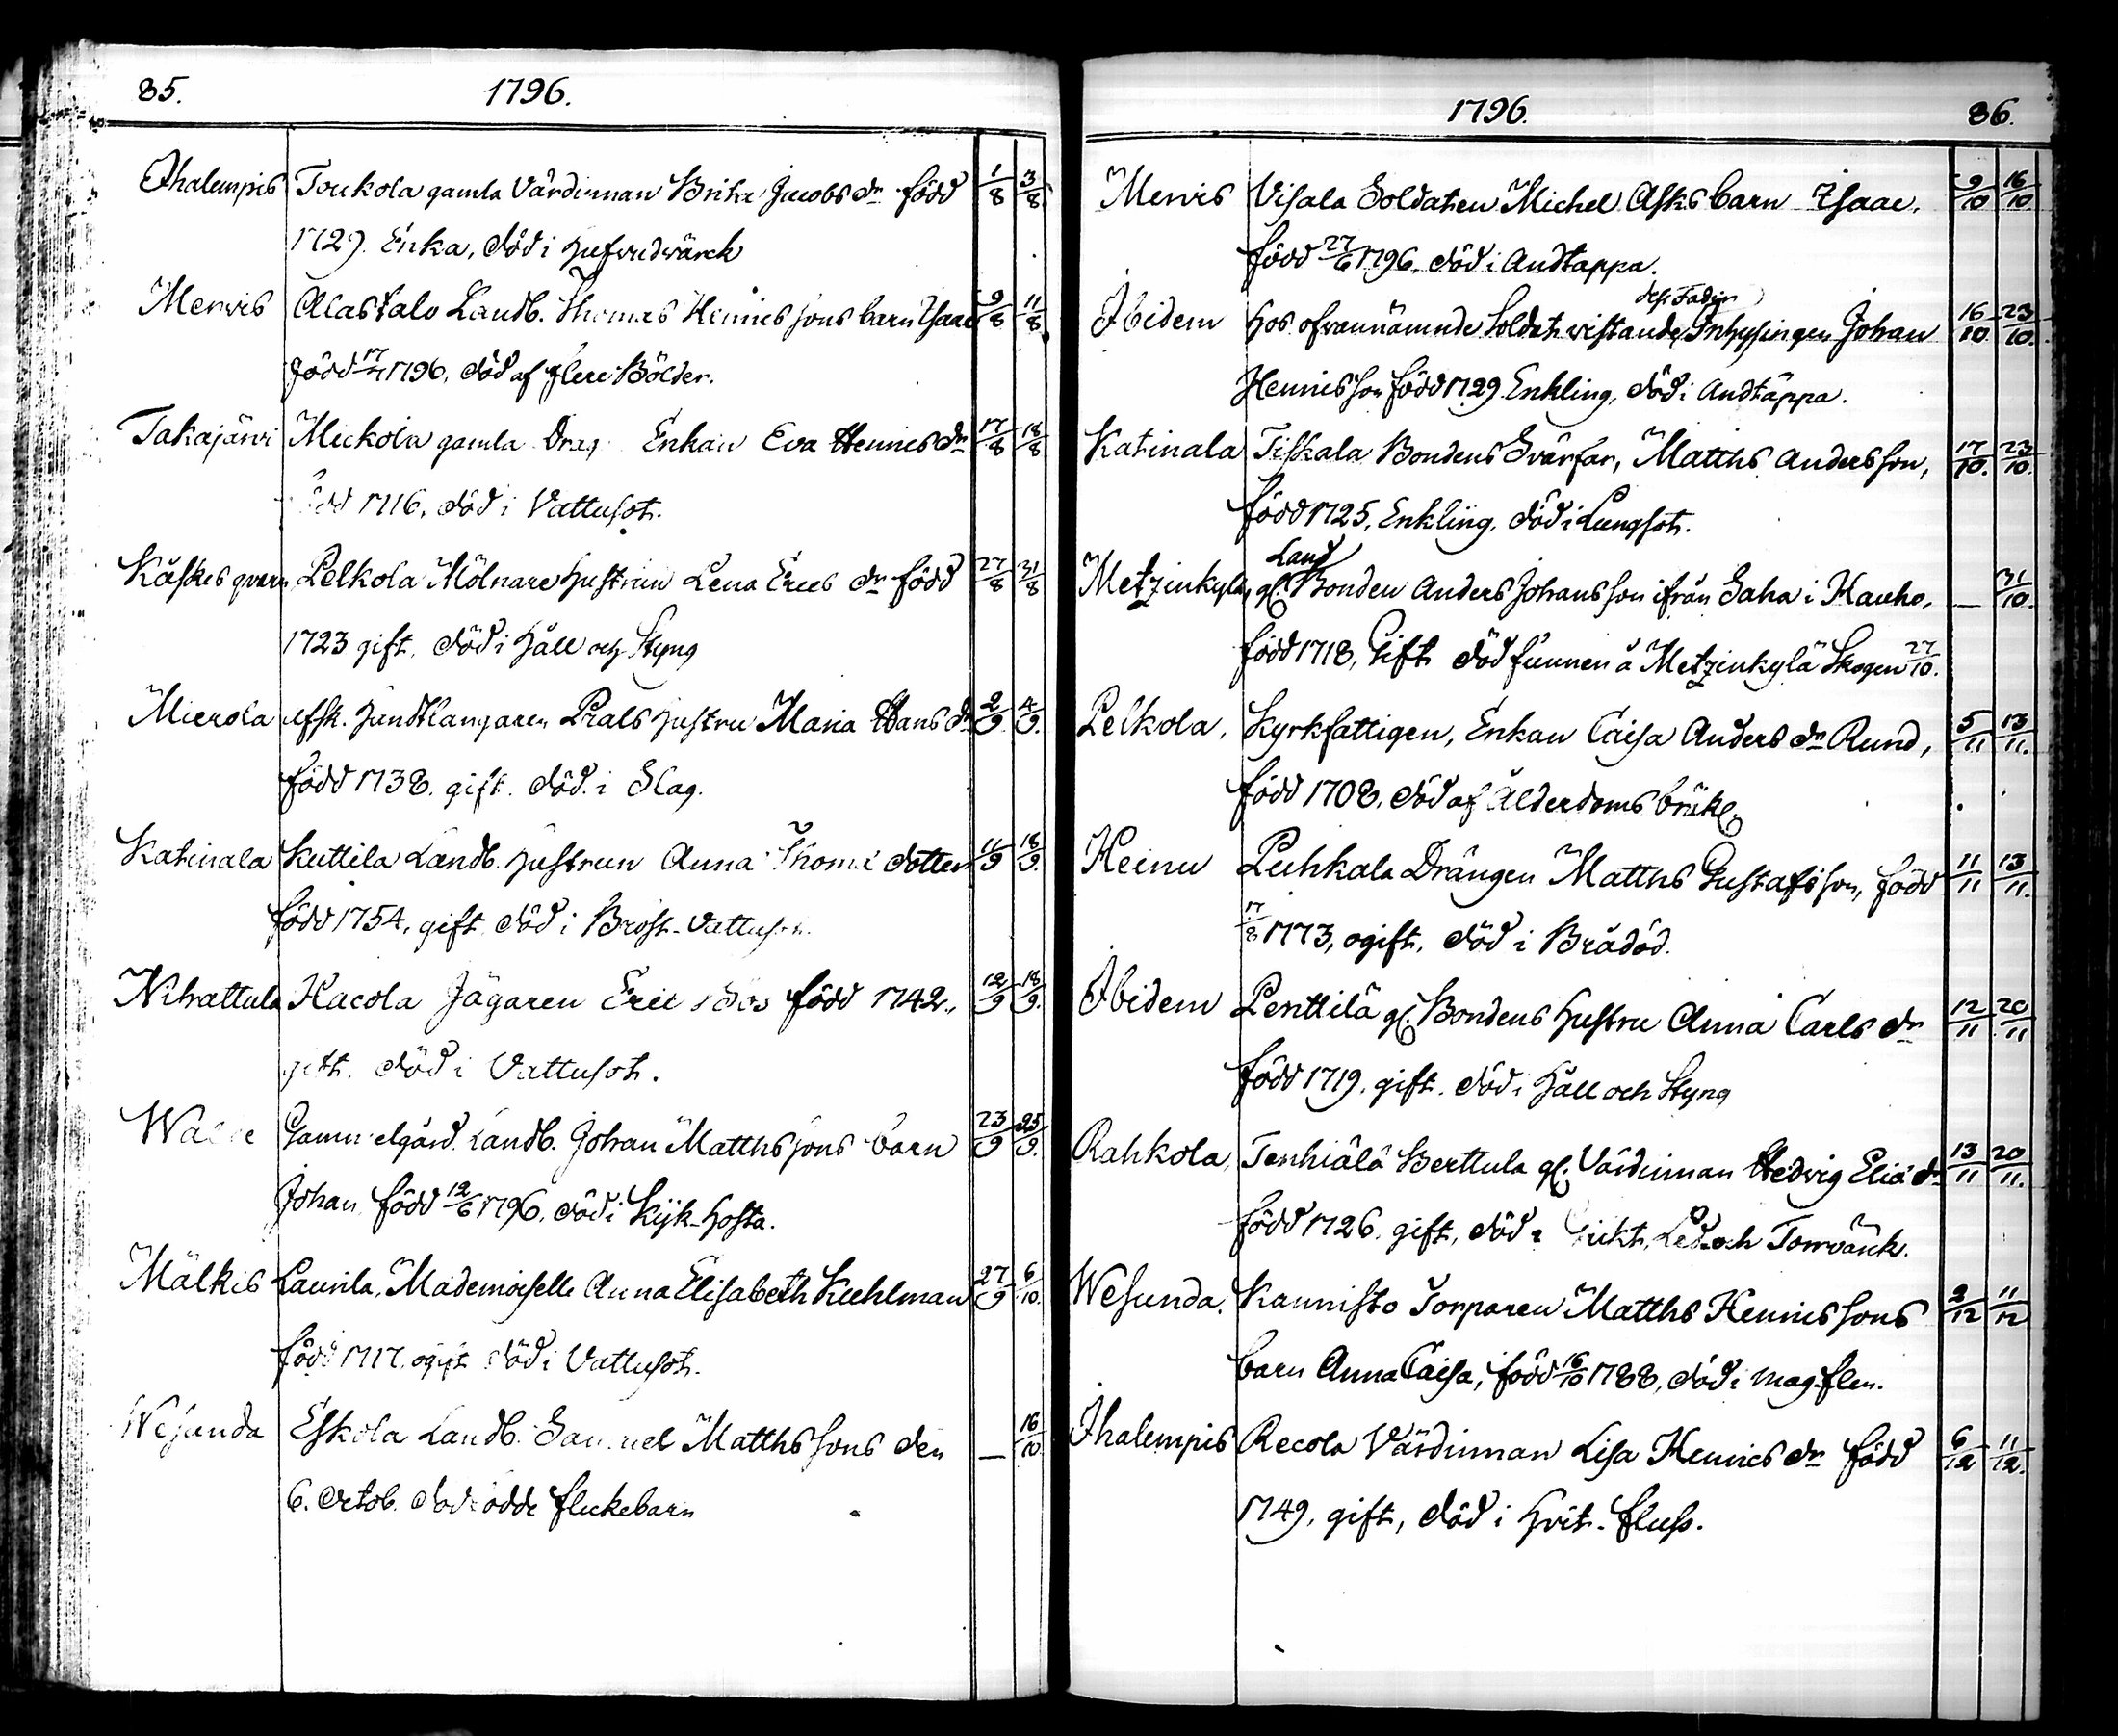 85. 1796.
Ihalempis Toukola gamla Värdinnan Brita Jacobs dr född 1/8 3/8
1729. Enka, död i hufvudvärck
Mervis Alastalo Landb. Thomas Hennes sons barn Isaac 9/8 11/8
född 17/7 1796, död af flere Bölder.
Takajärvi Muckola gamla Drag Enkan Eva Hennes dr 17/8 18/8
född 1716, död i Vattusot.
Käskes qvarn Pelkola Mölnare hustrun Lena Erics dr född 27/8 31/8
1723 gift. död i håll och Styng
Mierola afsk. handtlangaren Prals hustru Maria Hans dr 2/9 4/9.
född 1738. gift. död. i Slag.
Katinala Kuttila Landb. hustrun Anna Thomæ dotter 11/9 18/9.
född 1754, gift död i Bröst-Vattusot.
Nihattula Hacola Jägaren Eric Bös född 1742., 12/9 18/9.
gift. död i Vattusot.
Gammelgård. Landb. Johan Matths sons barn 23/9 25/9.
Johan född 12/6 1796. död i Kijk-hosta.
Mälkis Launila, Mademoiselle Anna Elisabeth Kuhlman 27/9 6/10.
född 1717. ogift död i Vattusot.
Wesunda Eskola Landb. Samuel Matths sons den — 16/10.
6. Octob. dödfödde flickebarn
1796. 86.
Mervis Visala Soldaten Michel Asks barn Isaac. 9/10 16/10.
född 27/6 1796. död i Andtäppa.
dess Fader
Ibidem hos ofvannämnde Soldat vistande Inhysingen Johan 16/10. 23/10.
Hennes son född 1729. Enkling, död i Andtäppa.
Katinala Tiskala Bondens Svärfar, Matths Anders son, 17/10. 23/10.
född 1725, Enkling. död i Lungsot.
Land
Metzinkylä gl. Bonden Anders Johans son ifrån Saha i Hauho. — 31/10.
född 1718, Gift död funnen å Metzinkylä Skogen 27/10.
Pelkola. Kyrkfattigen, Enkan Caisa Anders dr Rund, 5/11 13/11.
född 1708, död af Ålderdoms bräkl.
Heinu Puhkala Drängen Matths Gustafs son, född 11/11 13/11.
17/8 1773, ogift. död i Brådöd.
Ibidem Penttilä gl. Bondens hustru Anna Carls dr 12/11 20/11
född 1719. gift. död i håll och Styng
Rahkola, Tenhiälä Berttula gl. Värdinnan Hedvig Eliæ dr 13/11 20/11.
född 1726. gift, död i Gickt, Led och Torrvärck.
Wesunda. Kannisto Torparen Matths Hennes sons 2/12 11/12
barn Anna Caisa, född 16/10 1788, död i mag-flen.
Ihalempis Recola Värdinnan Lisa Hennes dr född 6/12 11/12.
1749, gift, död i hvit-fluss.